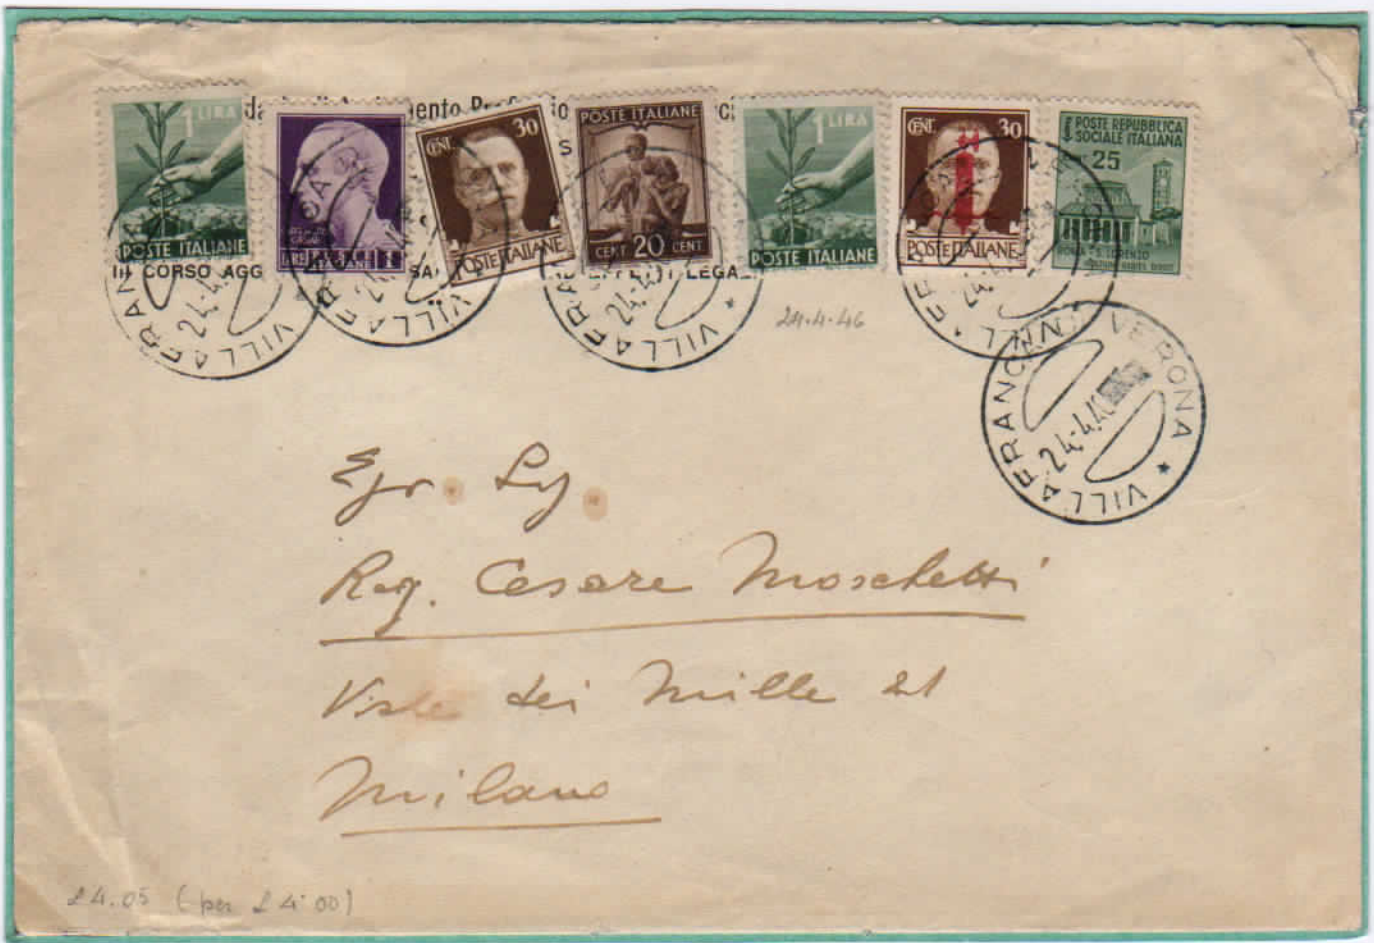 1 LIRA
POSTE ITALIANE
LIRE 1
CENT. 30
POSTE ITALIANE
POSTE ITALIANE
CENT 20 CENT
1 LIRA
POSTE ITALIANE
CENT. 30
POSTE ITALIANE
POSTE REPUBBLICA
SOCIALE ITALIANA
25
ROMA - S. LORENZO
III CORSO AGG
LEGA
24-4-46
VILLAFRANCA VERONA *
24.4.4
Egr. Sig.
Rag. Cesare Moschetti
Viale dei Mille 21
Milano
£4.05 (per £4.00)